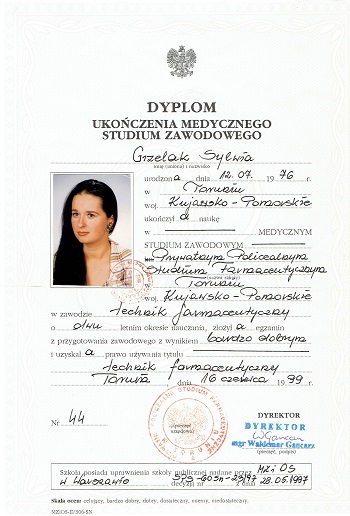 DYPLOM
UKOŃCZENIA MEDYCZNEGO
STUDIUM ZAWODOWEGO
Grzelak Sylwia
imię (imiona) i nazwisko
urodzona dnia 12.07. 1976 r.
w Toruniu
woj. Kujawsko-Pomorskie
ukończył a naukę
w MEDYCZNYM
STUDIUM ZAWODOWYM
Prywatnym Policealnym
Studium Farmaceutycznym
(nazwa szkoły)
Toruniu
woj. Kujawsko-Pomorskie
w zawodzie technik farmaceutyczny
o dwu letnim okresie nauczania, złożył a egzamin
z przygotowania zawodowego z wynikiem bardzo dobrym
i uzyskał a prawo używania tytułu
technik farmaceutyczny
Toruń dnia 16 czerwca 1999 r.
Nr 44
(pieczęć urzędowa)
DYREKTOR
DYREKTOR
mgr Waldemar Gancarz
(pieczęć, podpis)
Szkoła posiada uprawnienia szkoły publicznej nadane przez MZiOS
w Warszawie z dnia 28.05.1997
Skala ocen: celujący, bardzo dobry, dobry, dostateczny, mierny, niedostateczny.
MZ/OS-II/306-SN